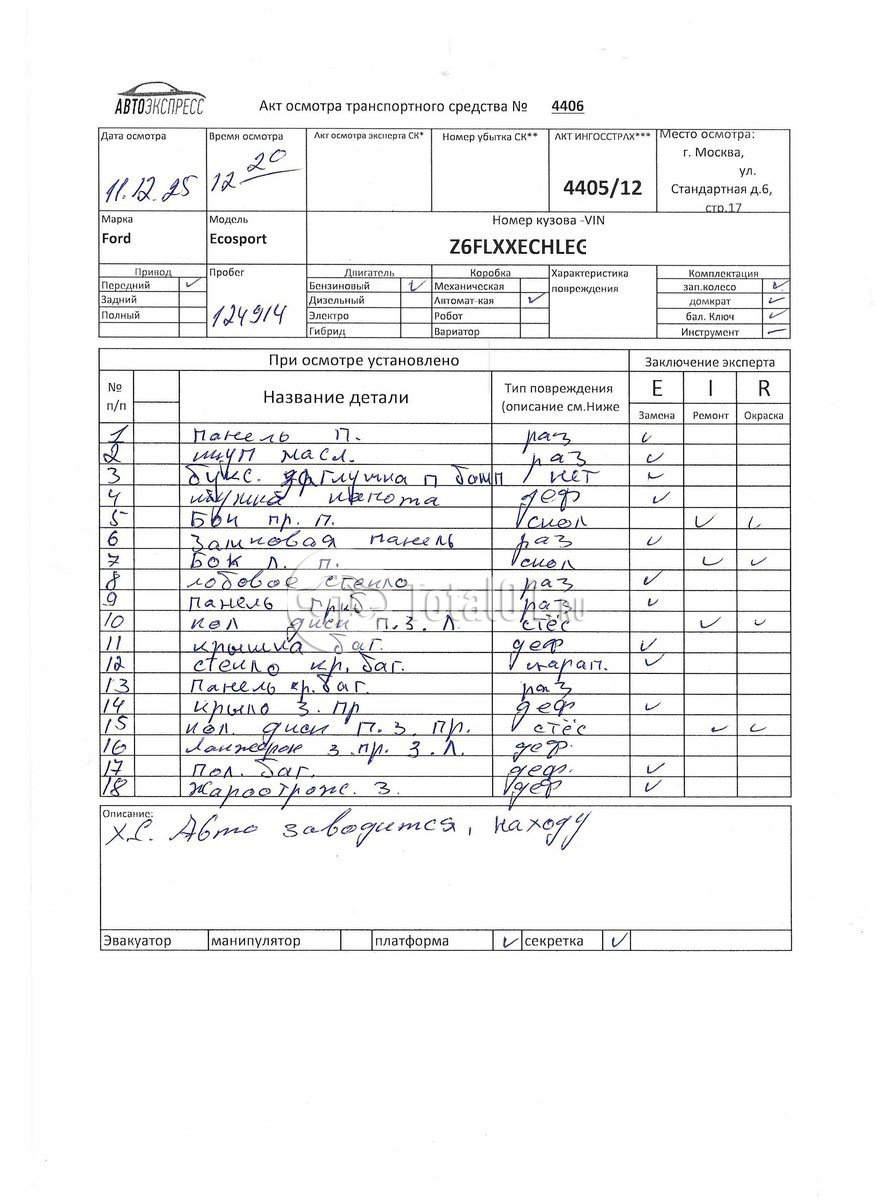 АВТОЭКСПРЕСС
Акт осмотра транспортного средства № 4406
Дата осмотра Время осмотра Акт осмотра эксперта СК* Номер убытка СК** АКТ ИНГОССТРАХ*** Место осмотра:
11.12.25 12 20 4405/12 г. Москва, ул. Стандартная д.6, стр.17
Марка Модель Номер кузова -VIN
Ford Ecosport Z6FLXXECHLEG
Привод Пробег Двигатель Коробка Характеристика повреждения Комплектация
Передний ✓ 124914 Бензиновый ✓ Механическая зап.колесо ✓
Задний Дизельный Автомат-кая ✓ домкрат ✓
Полный Электро Робот бал. Ключ ✓
Гибрид Вариатор Инструмент —
При осмотре установлено Заключение эксперта
№ п/п Название детали Тип повреждения (описание см.Ниже E I R
Замена Ремонт Окраска
1 панель п. раз ✓
2 щуп масл. раз ✓
3 букс. заглушка п бамп нет ✓
4 капота деф ✓
5 Бок пр. п. скол ✓ ✓
6 Замковая панель раз ✓
7 Бок л. п. скол ✓ ✓
8 лобовое стекло раз ✓
9 панель приб раз ✓
10 кол диски п. з. л. стёс ✓ ✓
11 крышка баг. деф ✓
12 стекло кр. баг. царап. ✓
13 Панель кр. баг. раз
14 крыло з. пр деф ✓
15 кол. диски п. з. пр. стёс ✓ ✓
16 Лонжерон з. пр. з. л. деф.
17 пол. баг. деф. ✓
18 жароотраж. з. деф ✓
TotalOL.RU
Описание:
Х.С. Авто заводится, находу
Эвакуатор манипулятор платформа ✓ секретка ✓